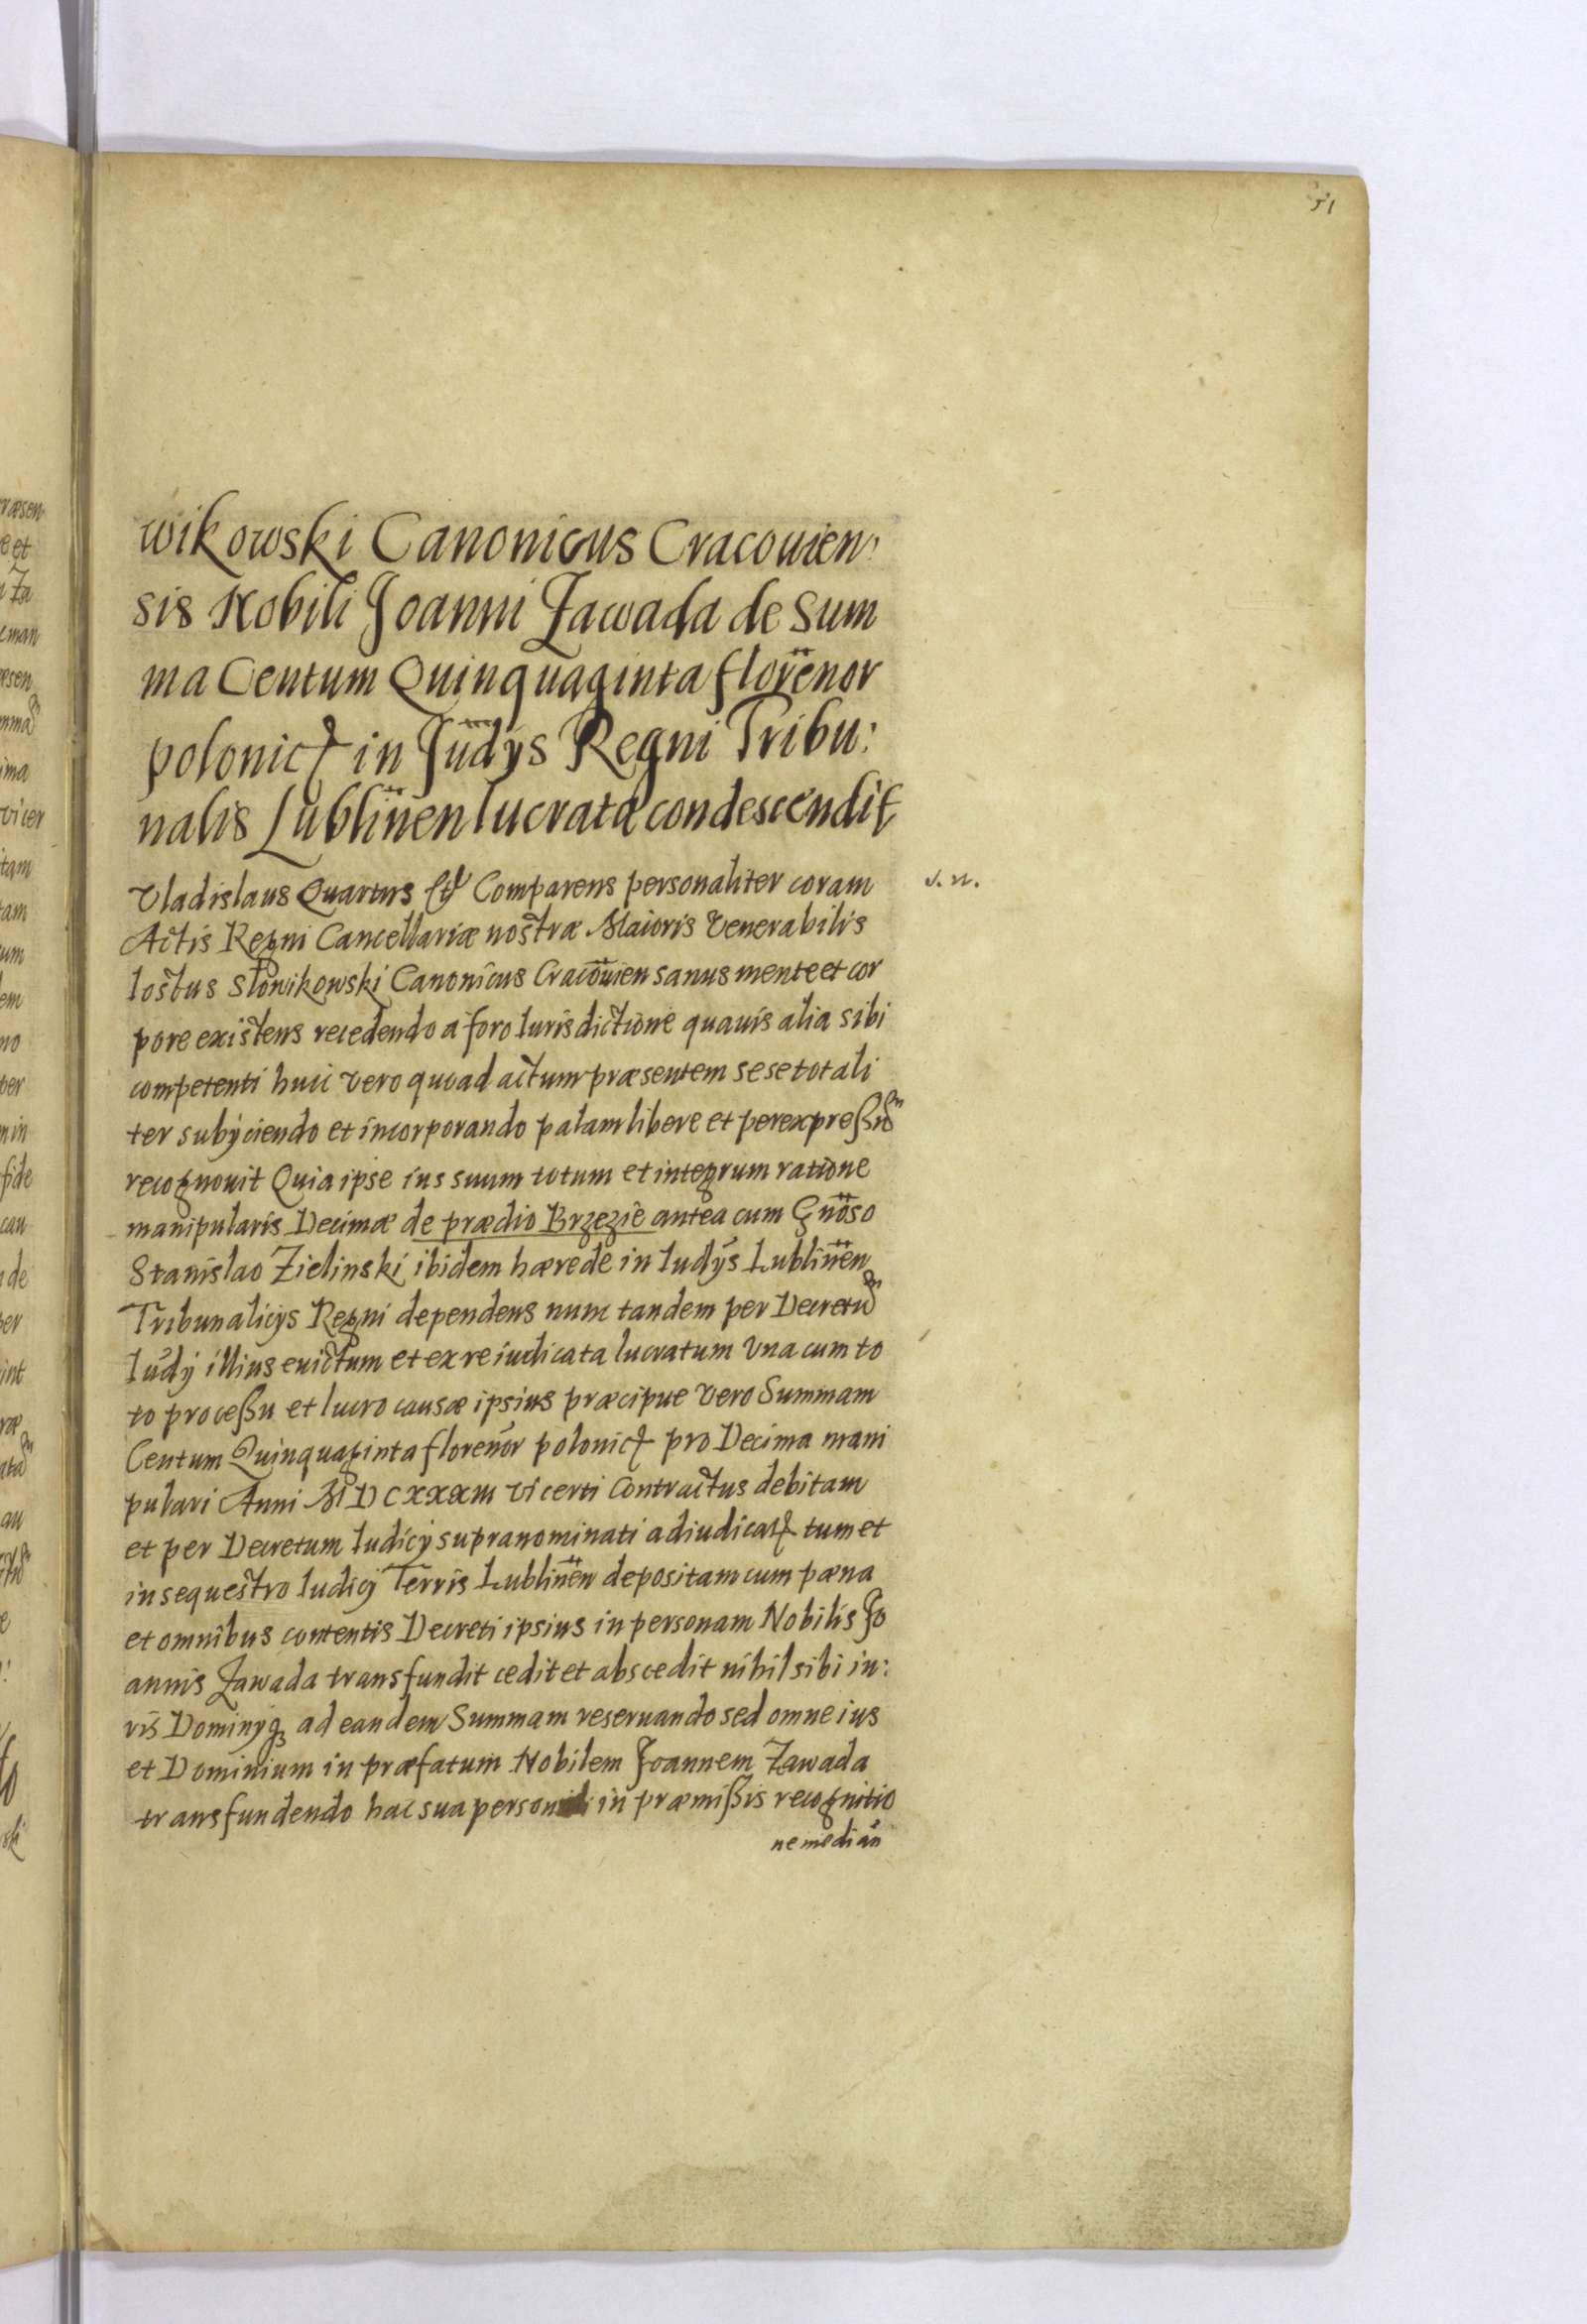 51
wikowski Canonicus Cracouien:
sis Nobili Joanni Zawada de Sum
ma Centum Quinquaginta florenor
polonic in Judys Regni Tribu:
nalis Lublinen lucrata condescendit
Vladislaus Quartus etc Comparens personaliter coram
J. N.
Actis Regni Cancellariæ nostræ Maioris Venerabilis
Iostus Słowikowski Canonicus Cracouien sanus mente et cor
pore existens recedendo a foro Iurisdictione quauis alia sibi
competenti huic vero quoad actum præsentem sese totali
ter subÿciendo et incorporando palam libere et per expreßum
recognouit Quia ipse ius suum totum et integrum ratione
manipularis Decimæ de prædio Brzezie antea cum Gnöso
Stanislao Zielinski ibidem hærede in Iudÿs Lublinen
Tribunalicÿs Regni dependens nunc tandem per Decretum
Iudÿ illius euictum et ex re iudicata lucratum Vna cum to
to proceßu et lucro causæ ipsius præcipue vero Summam
Centum Quinquaginta florenor polonic pro Decima mani
pulari Anni MDCXXXIII vi certi Contractus debitam
et per Decretum Iudicÿ supranominati adiudicat tum et
in sequestro Iudicÿ Terris Lublinen depositam cum pæna
et omnibus contentis Decreti ipsius in personam Nobilis Jo
annis Zawada transfundit cedit et abscedit nihil sibi iu:
ris Dominÿq ad eandem Summam reseruando sed omne ius
et Dominium in præfatum Nobilem Joannem Zawada
transfundendo hac sua personali in præmißis recognitio
ne median